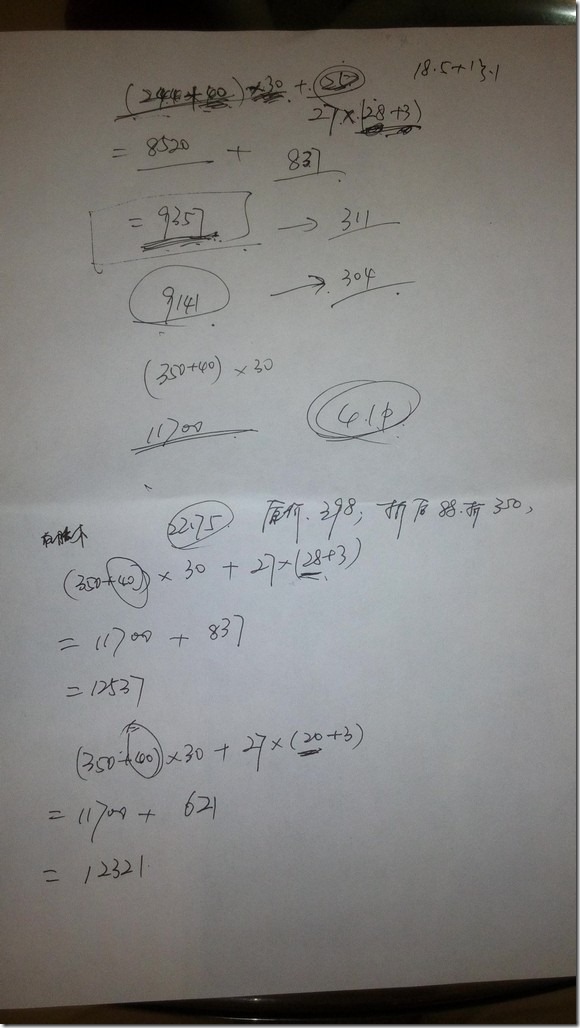 (244+40)×30 + 27 18.5+13.1
27×(28+3)
= 8520 + 837
= 9357 → 311
9141 → 304
(350+40)×30
11700
22.75 原价.398; 折后88折350,
(350+40)×30 + 27×(28+3)
= 11700 + 837
= 12537
(350+40)×30 + 27×(20+3)
= 11700 + 621
= 12321